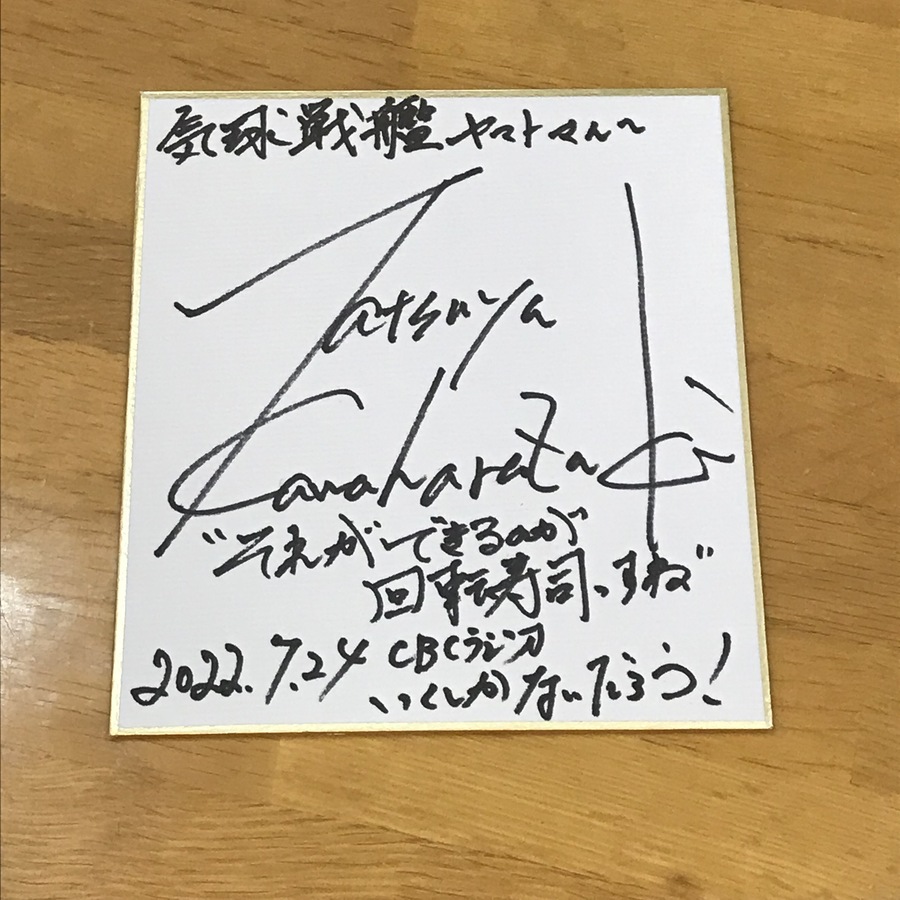 気球戦艦ヤマトさんへ
Tatsuya
Kawaharazaki
"それができるのが
回転寿司っすね"
2022.7.24 CBCラジオ
いくしかないだろう!